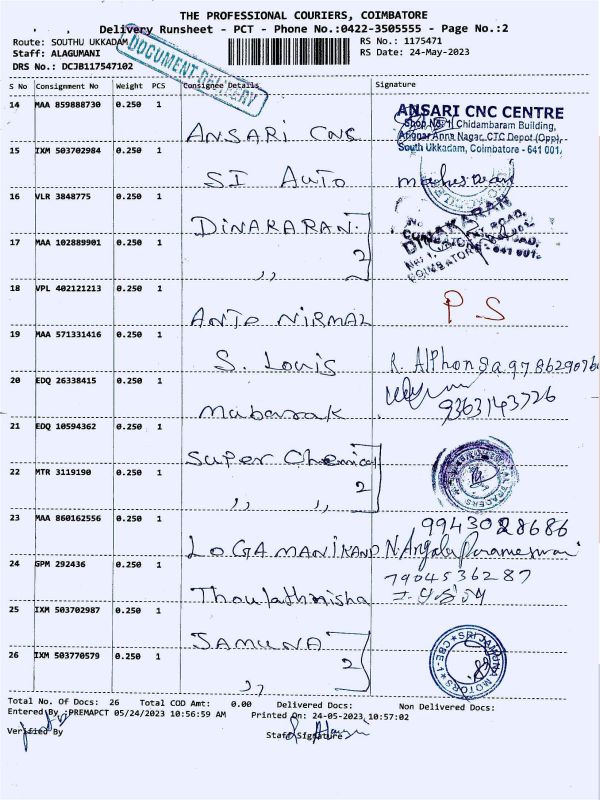 THE PROFESSIONAL COURIERS, COIMBATORE
Delivery Runsheet - PCT - Phone No.:0422-3505555 - Page No.:2
Route: SOUTHU UKKADAM
RS No.: 1175471
Staff: ALAGUMANI
RS Date: 24-May-2023
DRS No.: DCJB117547102
DOCUMENT DELIVERY
S No Consignment No Weight PCS Consignee Details Signature
14 MAA 859888730 0.250 1
ANSARI CNC
ANSARI CNC CENTRE
Shop No. 1 Chidambaram Building,
Annai Anna Nagar, CTC Depot (Opp),
South Ukkadam, Coimbatore - 641 001.
15 IXM 503702984 0.250 1
SI AUTO
16 VLR 3848775 0.250 1
DINAKARAN
DINAKARAN
17 MAA 102889901 0.250 1
2
,,
18 VPL 402121213 0.250 1
ANTO NIRMAL
P.S
19 MAA 571331416 0.250 1
S. Louis
R. Alphonsa
20 EDQ 26338415 0.250 1
Mubarak
9363143726
21 EDQ 10594362 0.250 1
Super Chemical
22 MTR 3119190 0.250 1
2
,, ,,
23 MAA 860162556 0.250 1
9943028686
LOGAMANIKAND
N. Angala Parameswari
24 GPM 292436 0.250 1
7904536287
Thoulathnisha
25 IXM 503702987 0.250 1
JAMUNA
SRI JAMUNA MOTORS
CBE-1
26 IXM 503770579 0.250 1
2
,,
Total No. Of Docs: 26 Total COD Amt: 0.00 Delivered Docs: Non Delivered Docs:
Entered By :PREMAPCT 05/24/2023 10:56:59 AM Printed On: 24-05-2023 10:57:02
Verified By
Staff Signature